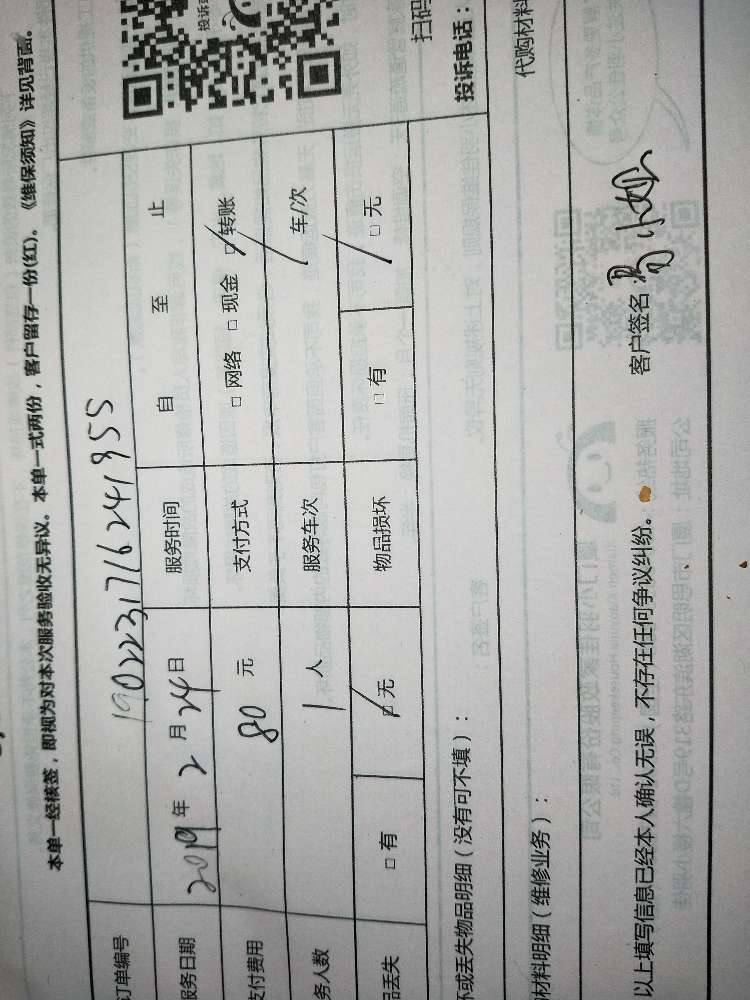 本单一经核签，即视为对本次服务验收无异议。本单一式两份，客户留存一份(红)。《维保须知》详见背面。
订单编号 1902231716241955
服务日期 2019年2月24日 服务时间 自 至 止
支付费用 80元 支付方式 □网络 □现金 □转账
务人数 1人 服务车次 车/次
品丢失 □有 □无 物品损坏 □有 □无
坏或丢失物品明细（没有可不填）： 投诉电话：
材料明细（维修业务）： 代购材料
以上填写信息已经本人确认无误，不存在任何争议纠纷。 客户签名：
扫码
投诉